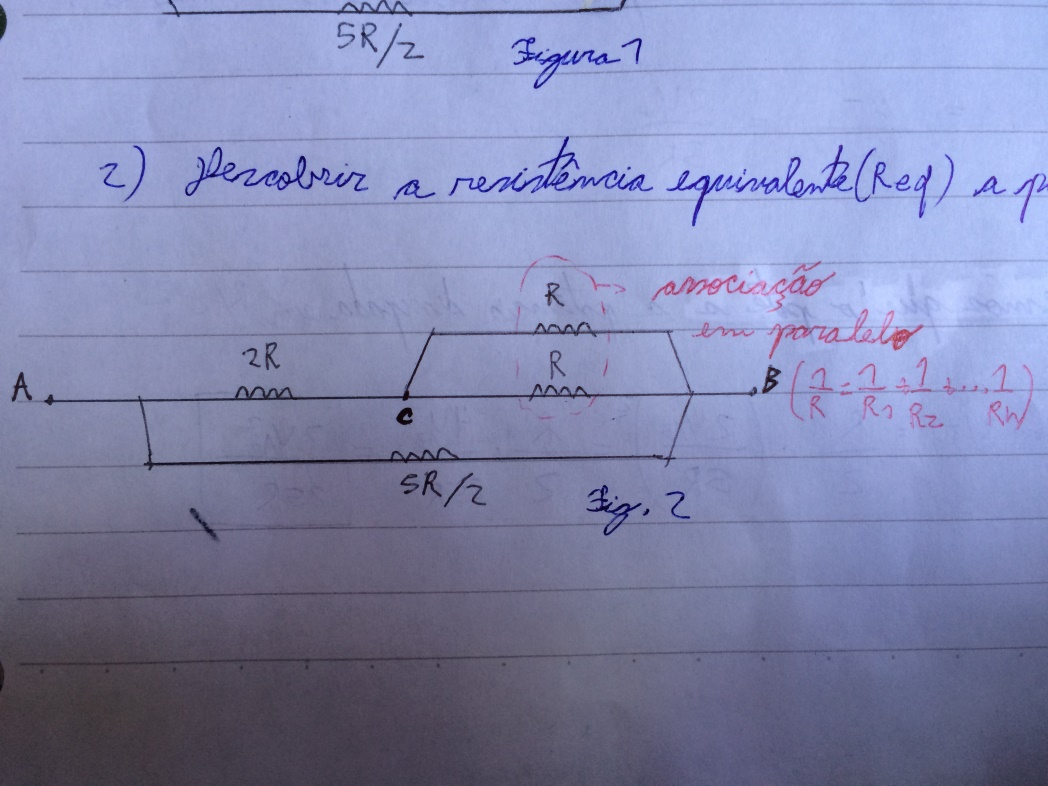 5R/2
Figura 1
2) Descobrir a resistência equivalente (Req) a p
R associação
em paralelo
2R R
A C B (1/R = 1/R1 + 1/R2 + ... 1/Rn)
5R/2
Fig. 2